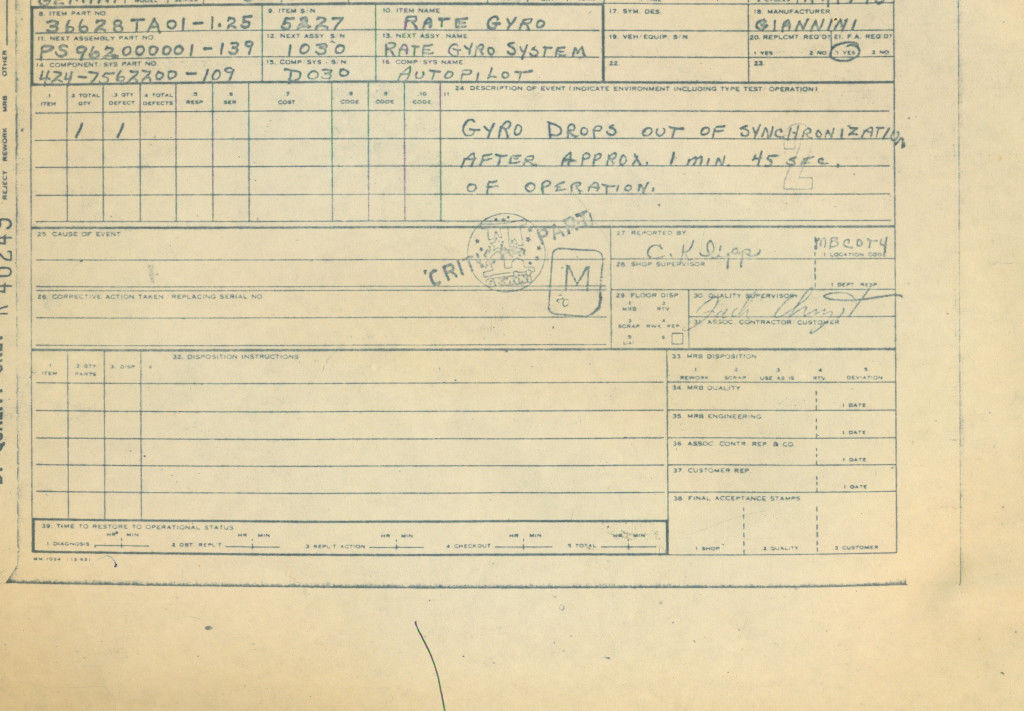 8. ITEM PART NO. 9. ITEM S/N 10. ITEM NAME 17. SYM. DES. 18. MANUFACTURER
36628TA01-1.25 5227 RATE GYRO GIANNINI
11. NEXT ASSEMBLY PART NO. 12. NEXT ASSY. S/N 13. NEXT ASSY NAME 19. VEH/EQUIP. S/N 20. REPLCMT REQ'D? 21. F.A. REQ'D?
PS962000001-139 1030 RATE GYRO SYSTEM 1 YES 2 NO 1 YES 2 NO
14 COMPONENT SYS PART NO. 15. COMP SYS - S/N 16 COMP SYS NAME 22. 23.
424-7562200-109 D030 AUTOPILOT
1 ITEM 2 TOTAL QTY 3 QTY DEFECT 4 TOTAL DEFECTS 5 RESP 6 SER 7 COST 8 CODE 9 CODE 10 CODE 11 24 DESCRIPTION OF EVENT (INDICATE ENVIRONMENT INCLUDING TYPE TEST/OPERATION)
1 1 GYRO DROPS OUT OF SYNCHRONIZATION
AFTER APPROX. 1 MIN. 45 SEC.
OF OPERATION.
25 CAUSE OF EVENT 27 REPORTED BY
CRITICAL PART
GEMINI
M
C. Klipp
1 LOCATION CODE
28 SHOP SUPERVISOR
1 DEPT RESP
26. CORRECTIVE ACTION TAKEN REPLACING SERIAL NO 29. FLOOR DISP 30 QUALITY SUPERVISOR
1 MRB 2 RTV
31 ASSOC CONTRACTOR CUSTOMER
3 SCRAP 4 RWK REP
1 ITEM 2 QTY PARTS 3. DISP 4 32. DISPOSITION INSTRUCTIONS 33 MRB DISPOSITION
1 REWORK 2 SCRAP 3 USE AS IS 4 RTV 5 DEVIATION
34. MRB QUALITY
1 DATE
35. MRB ENGINEERING
1 DATE
36 ASSOC CONTR REP & CO.
1 DATE
37. CUSTOMER REP
1 DATE
38. FINAL ACCEPTANCE STAMPS
39. TIME TO RESTORE TO OPERATIONAL STATUS
HR MIN HR MIN HR MIN HR MIN HR MIN
1 DIAGNOSIS 2 OBT. REPL'T 3 REPL'T ACTION 4 CHECKOUT 5 TOTAL 1 SHOP 2 QUALITY 3 CUSTOMER
REJECT REWORK MRB OTHER
40249